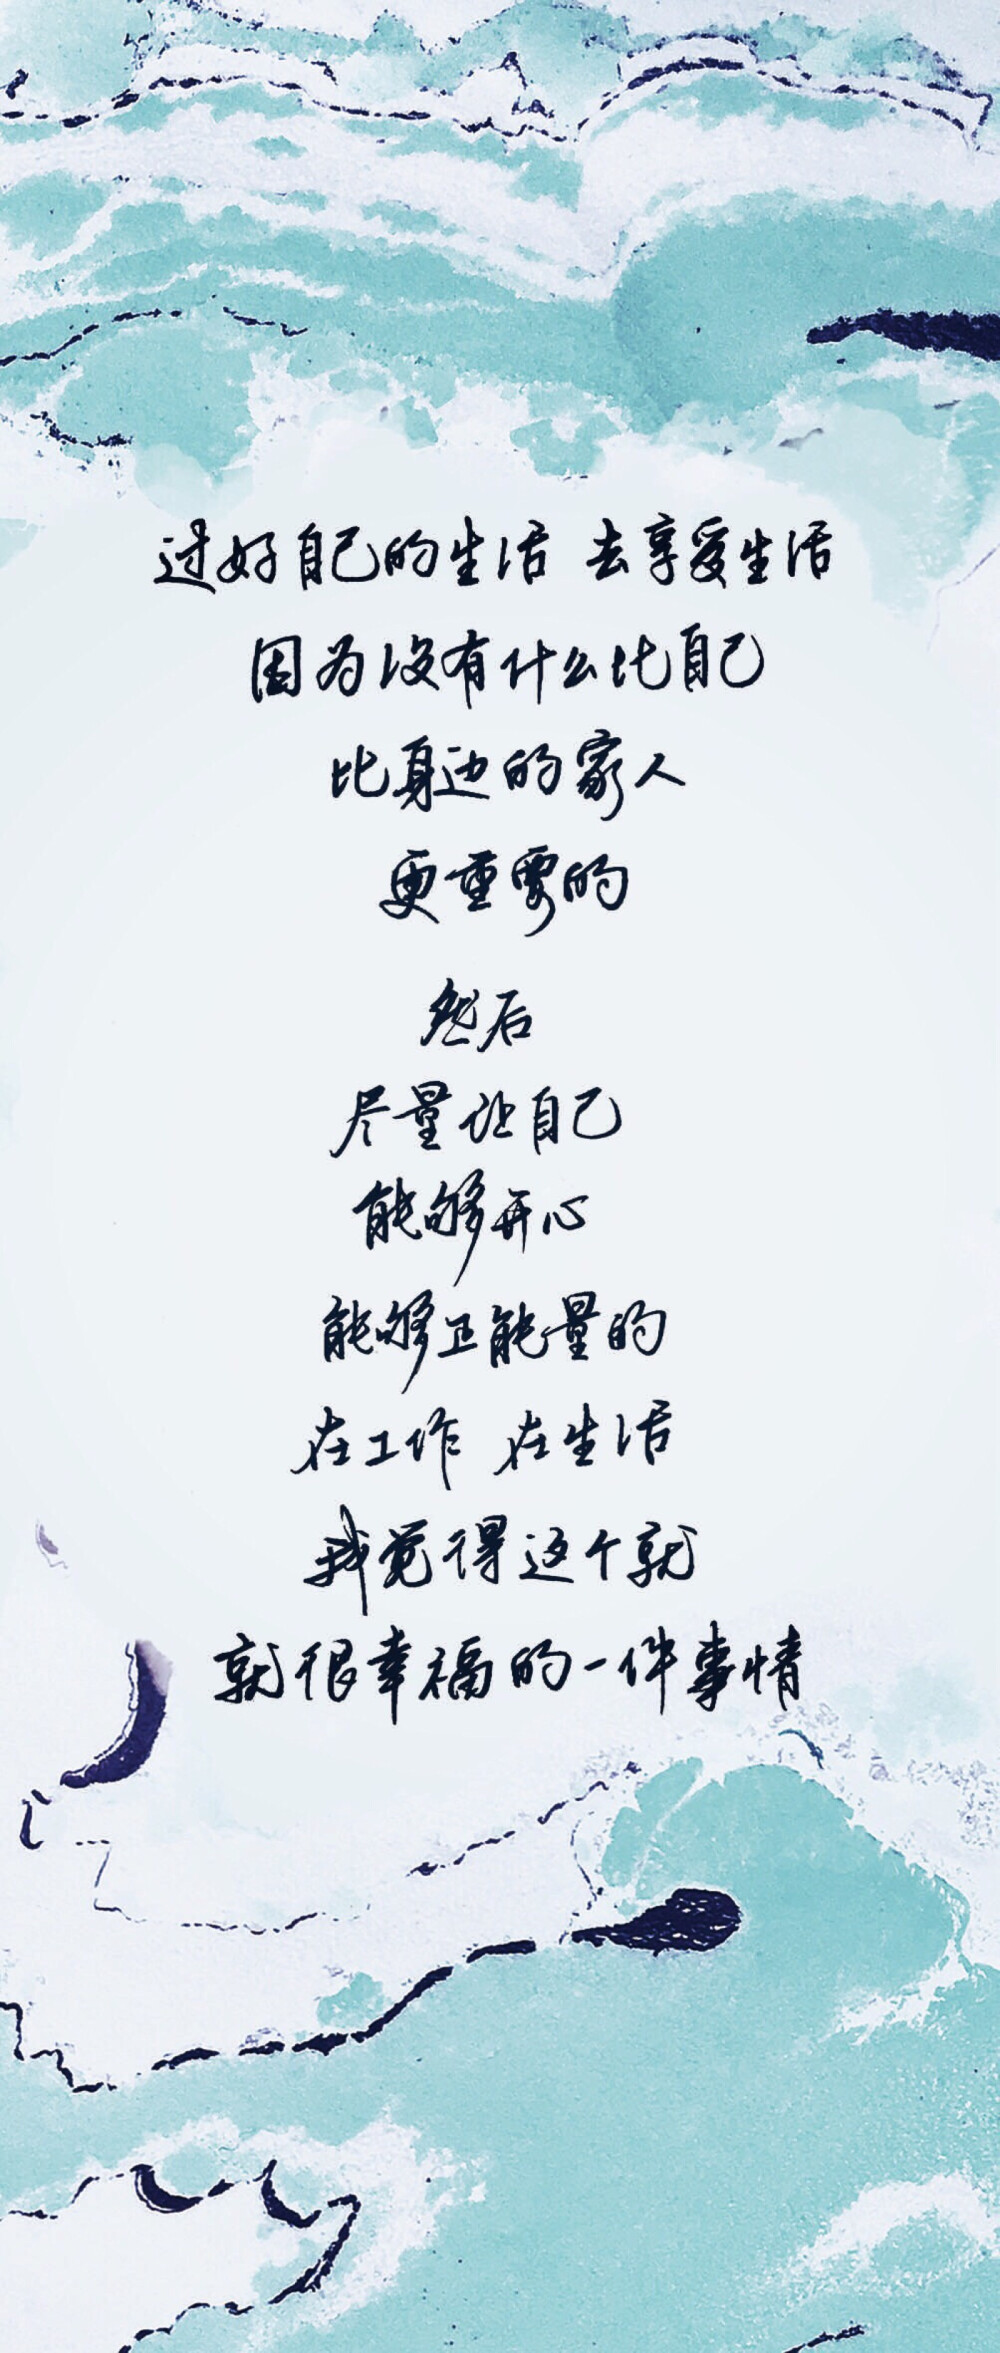 过好自己的生活 去享爱生活
因为没有什么比自己
比身边的家人
更重要的
然后
尽量让自己
能够开心
能够正能量的
在工作 在生活
我觉得这个就
就很幸福的一件事情